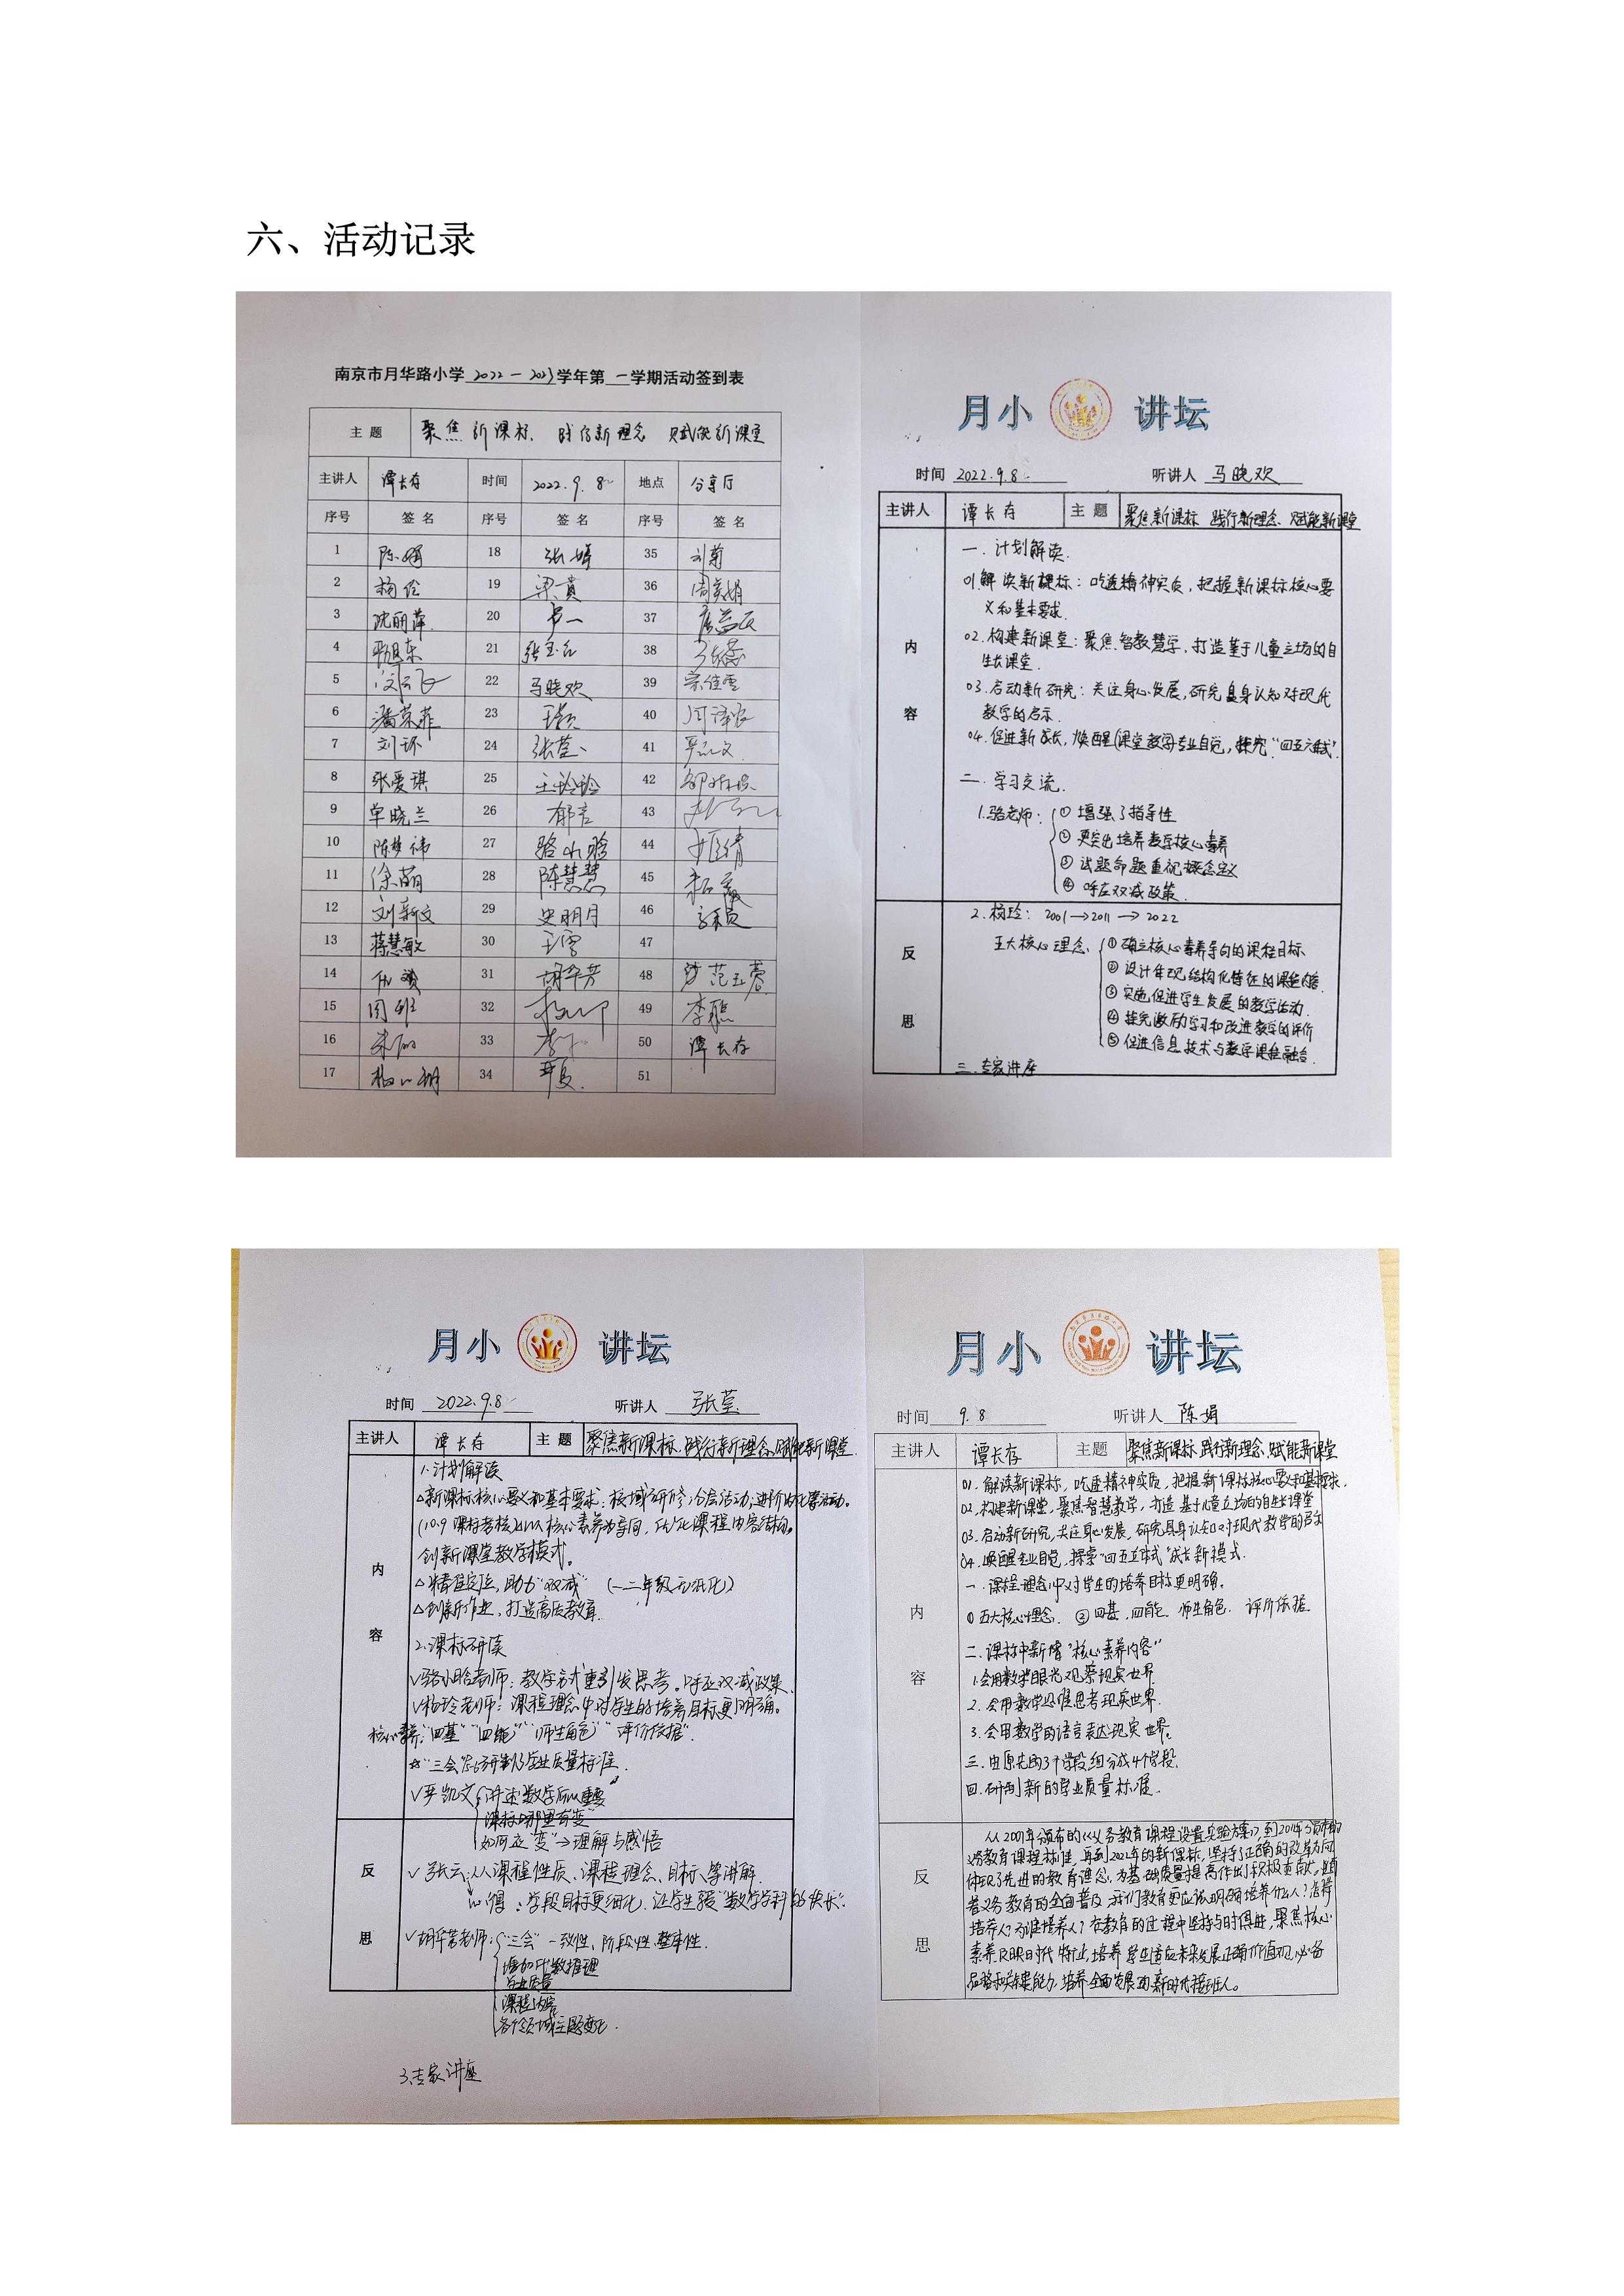 六、活动记录
南京市月华路小学 2022-2023学年第一学期活动签到表
主 题 聚焦新课标 践行新理念 赋能新课堂
主讲人 谭长存 时间 2022.9.8 地点 分享厅
序号 签 名 序号 签 名 序号 签 名
1 陈娟 18 张婷 35 刘菊
2 杨伦 19 梁真 36 周美娟
3 沈丽萍 20 37
4 21 张玉 38
5 22 马晓欢 39 宗佳雪
6 潘荣菲 23 王颖 40
7 刘环 24 张莹 41 严凯文
8 张爱琪 25 王诊诊 42
9 单晓兰 26 郁言 43
10 陈梦祎 27 骆小晗 44 姬倩
11 徐萌 28 陈慧慧 45
12 刘新文 29 史明月 46
13 蒋慧敏 30 王雪 47
14 31 胡华芳 48 范玉蓉
15 周班 32 49 李聪
16 33 50 谭长存
17 34 51
月小 讲坛
时间 2022.9.8 听讲人 马晓欢
主讲人 谭长存 主 题 聚焦新课标 践行新理念 赋能新课堂
内
容
一. 计划解读.
01.解读新课标：吃透精神实质，把握新课标核心要
义和基本要求.
02.构建新课堂：聚焦智教慧学，打造基于儿童立场的自
生长课堂.
03.启动新研究：关注身心发展，研究具身认知对现代
教学的启示.
04.促进新成长，焕醒课堂教学专业自觉，探究“四五六式”.
二. 学习交流.
1.骆老师：①增强了指导性
②更突出培养数学核心素养
③试题命题重视概念定义
④呼应双减政策.
反
思
2.杨玲：2001→2011→2022
五大核心理念. ①确立核心素养导向的课程目标
②设计体现结构化特征的课程内容.
③实施促进学生发展的教学活动.
④探究激励学习和改进教学的评价
⑤促进信息技术与数学课程融合.
三.专家讲座
月小 讲坛
时间 2022.9.8 听讲人 张莹
主讲人 谭长存 主 题 聚焦新课标.践行新理念.赋能新课堂
内
容
1.计划解读
△新课标核心要义和基本要求.校域研修,分层活动,进阶
(10.9课标考核)以核心素养为导向,优化课程内容结构。
创新课堂教学模式。
△精准定位,助力“双减” (一二年级无纸化)
△创新作业,打造高质教育.
2.课标研读
√骆小晗老师：教学方式重引发思考。呼应双减政策.
√杨玲老师：课程理念中对学生的培养目标更明确。
核心素养：“四基”“四能”“师生角色”“评价依据”.
☆“三会”后研制了学业质量标准.
√严凯文 讲述数学所以重要
课标哪里有变
如何应“变”→理解与感悟
反
思
√张云:从课程性质、课程理念、目标、等讲解
心得：学段目标更细化.让学生受“数学学科的快乐”.
√胡华芳老师： “三会”一致性,阶段性.整体性.
增加代数推理
学业质量
课程内容
各个领域主题变化.
3.专家讲座
月小 讲坛
时间 9.8 听讲人 陈娟
主讲人 谭长存 主题 聚焦新课标.践行新理念.赋能新课堂
内
容
01.解读新课标，吃透精神实质，把握新课标核心要义和基本要求.
02.构建新课堂，聚焦智慧教学，打造基于儿童立场的自生长课堂
03.启动新研究,关注身心发展，研究具身认知对现代教学的启示
04.唤醒专业自觉，探索“四五立体式”成长新模式.
一.课程理念中对学生的培养目标更明确。
①五大核心理念. ②四基,四能.师生角色.评价依据.
二.课标中新增“核心素养内容”
1.会用数学眼光观察现实世界.
2.会用数学思维思考现实世界.
3.会用数学的语言表达现实世界。
三.由原先的3个学段细分成4个学段.
四.研制新的学业质量标准.
反
思
从2001年颁布的《义务教育课程设置实验方案》,到2011年颁布的
义务教育课程标准,再到2022年的新课标,坚持了正确的改革方向,
体现了先进的教育理念,为基础质量提高作出了积极贡献,随
着义务教育的全面普及,我们教育更应该明确培养什么人?怎样
培养人?为谁培养人?在教育的过程中坚持与时俱进,聚焦核心
素养及眼时代特征,培养学生适应未来发展正确价值观,必备
品格和关键能力.培养全面发展的新时代接班人。